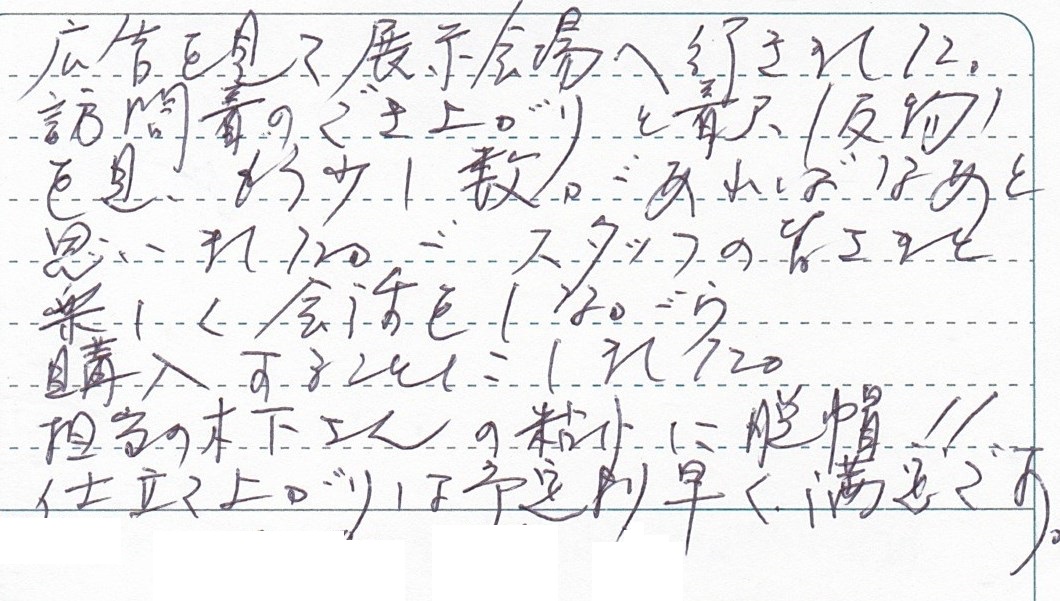 広告を見て展示会場へ行きました。
訪問着のでき上がりと着尺(反物)
を見、もう少し数があればなあと
思いましたが スタッフの皆さまと
楽しく会話をしながら
購入することにしました。
担当の木下さんの粘りに脱帽!!
仕立て上がりは予定より早く、満足です。